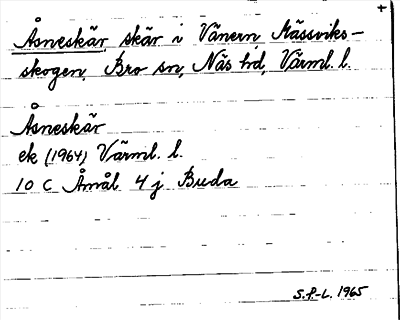 +
Åsneskär, skär i Vänern Mässviks-
skogen, Bro sn, Näs hd, Värml. l.
Åsneskär
ek (1964) Värml. l.
10 C Åmål 4 j Buda
S.P-L. 1965